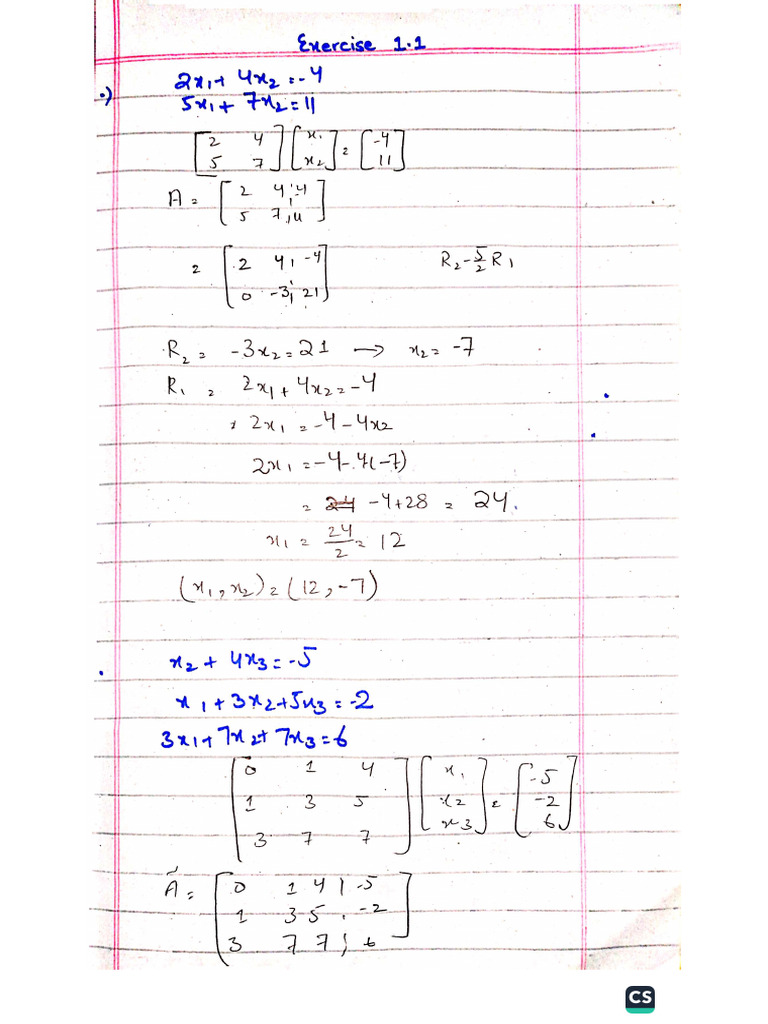 Exercise 1.1
•) 2x₁ + 4x₂ = -4
5x₁ + 7x₂ = 11
[2 4; 5 7] [x₁; x₂] = [-4; 11]
A = [2 4 ¦ -4; 5 7 ¦ 11]
= [2 4 ¦ -4; 0 -3 ¦ 21] R₂ - 5/2 R₁
R₂ = -3x₂ = 21 → x₂ = -7
R₁ = 2x₁ + 4x₂ = -4
2x₁ = -4 - 4x₂
2x₁ = -4 - 4(-7)
= -4 + 28 = 24.
x₁ = 24/2 = 12
(x₁, x₂) = (12, -7)
• x₂ + 4x₃ = -5
x₁ + 3x₂ + 5x₃ = -2
3x₁ + 7x₂ + 7x₃ = 6
[0 1 4; 1 3 5; 3 7 7] [x₁; x₂; x₃] = [-5; -2; 6]
Ã = [0 1 4 | -5; 1 3 5 ¦ -2; 3 7 7 ¦ 6]
CS